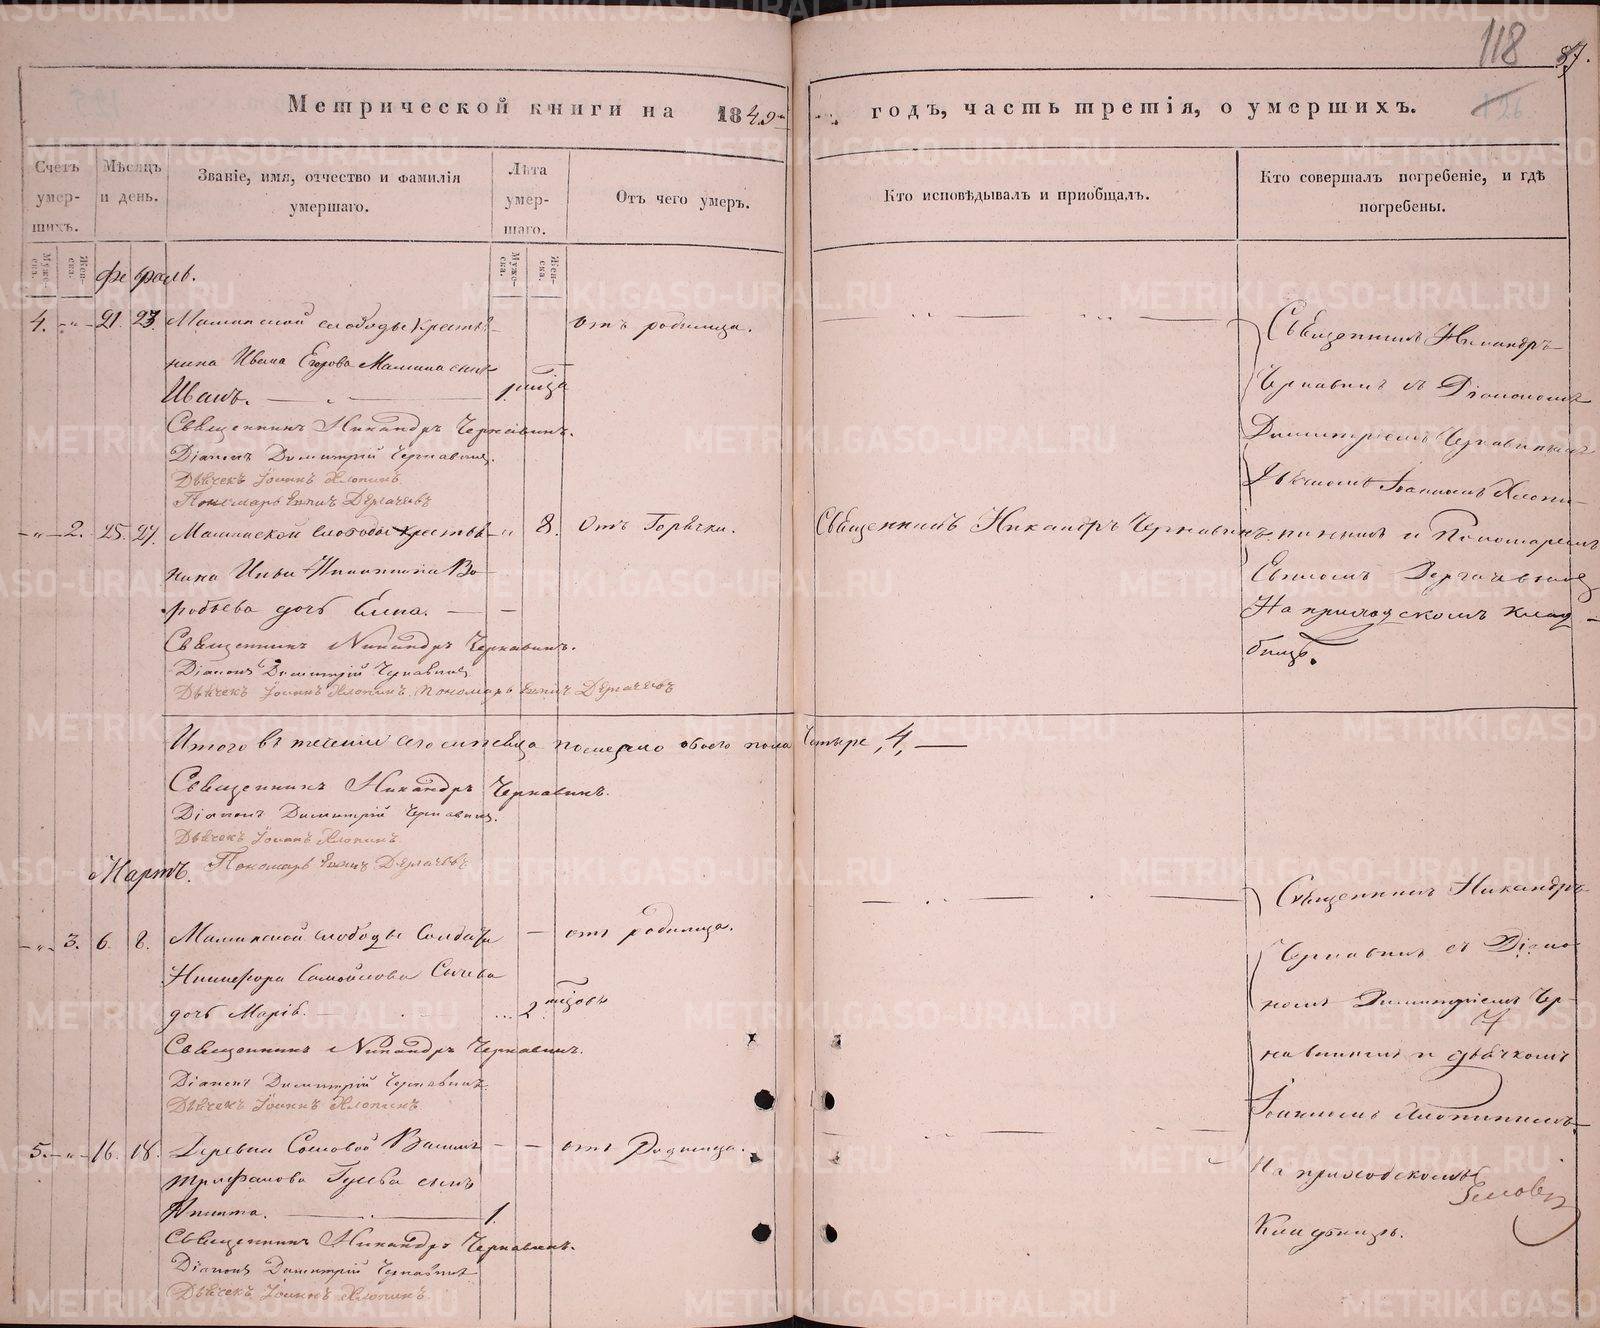 118
87.
126
Метрической книги на 1840 годъ, часть третія, о умершихъ.
Счетъ умер- шихъ.
Мѣсяцъ и день.
Званіе, имя, отчество и фамилія умершаго.
Лѣта умер- шаго.
Отъ чего умеръ.
Кто исповѣдывалъ и приобщалъ.
Кто совершалъ погребеніе, и гдѣ погребены.
Муже- ска.
Жен- ска.
Муже- ска.
Жен- ска.
Февраль.
4. 21. 23. слободы Крестья-
нина Ивана Егорова сынъ
Иванъ.
отъ родимца.
Священникъ Никандръ Чернавинъ.
Діаконъ Димитрій Чернавинъ.
Дьячекъ Іоаннъ Хлопинъ.
Пономарь Дергачевъ
2. 25. 27. слободы крестья-
нина Никитина Во-
робьева дочь Елена.
8. Отъ Горячки.
Священникъ Никандръ Чернавинъ
Священникъ Никандръ Чернавинъ.
Діаконъ Димитрій Чернавинъ
Дьячекъ Іоаннъ Хлопинъ. Пономарь Дергачевъ
Священникъ Никандръ
Чернавинъ съ Діакономъ
Димитріемъ Чернавинымъ
Дьячкомъ Іоанномъ Хлопи-
нымъ и Пономаремъ
Дергачевымъ
На приходскомъ клад-
бищѣ.
Итого въ теченіи сего мѣсяца померло обоего пола четыре, 4,
Священникъ Никандръ Чернавинъ.
Діаконъ Димитрій Чернавинъ.
Дьячекъ Іоаннъ Хлопинъ.
Пономарь Дергачевъ
Мартъ.
3. 6. 8. слободы Солдата
Никифора Самойлова Сычева
дочь Марія.
2
отъ родимца.
Священникъ Никандръ Чернавинъ.
Діаконъ Димитрій Чернавинъ.
Дьячекъ Іоаннъ Хлопинъ
5. 16. 18. Деревни Сосновой
Трифанова сынъ
Никита.
1.
отъ Родимца.
Священникъ Никандръ Чернавинъ.
Діаконъ Димитрій Чернавинъ
Дьячекъ Іоаннъ Хлопинъ.
Священникъ Никандръ
Чернавинъ съ Діако-
номъ Димитріемъ Чер-
навинымъ и дьячкомъ
Іоанномъ Хлопинымъ
На приходскомъ
Кладбищѣ.
METRIKI.GASO-URAL.RU